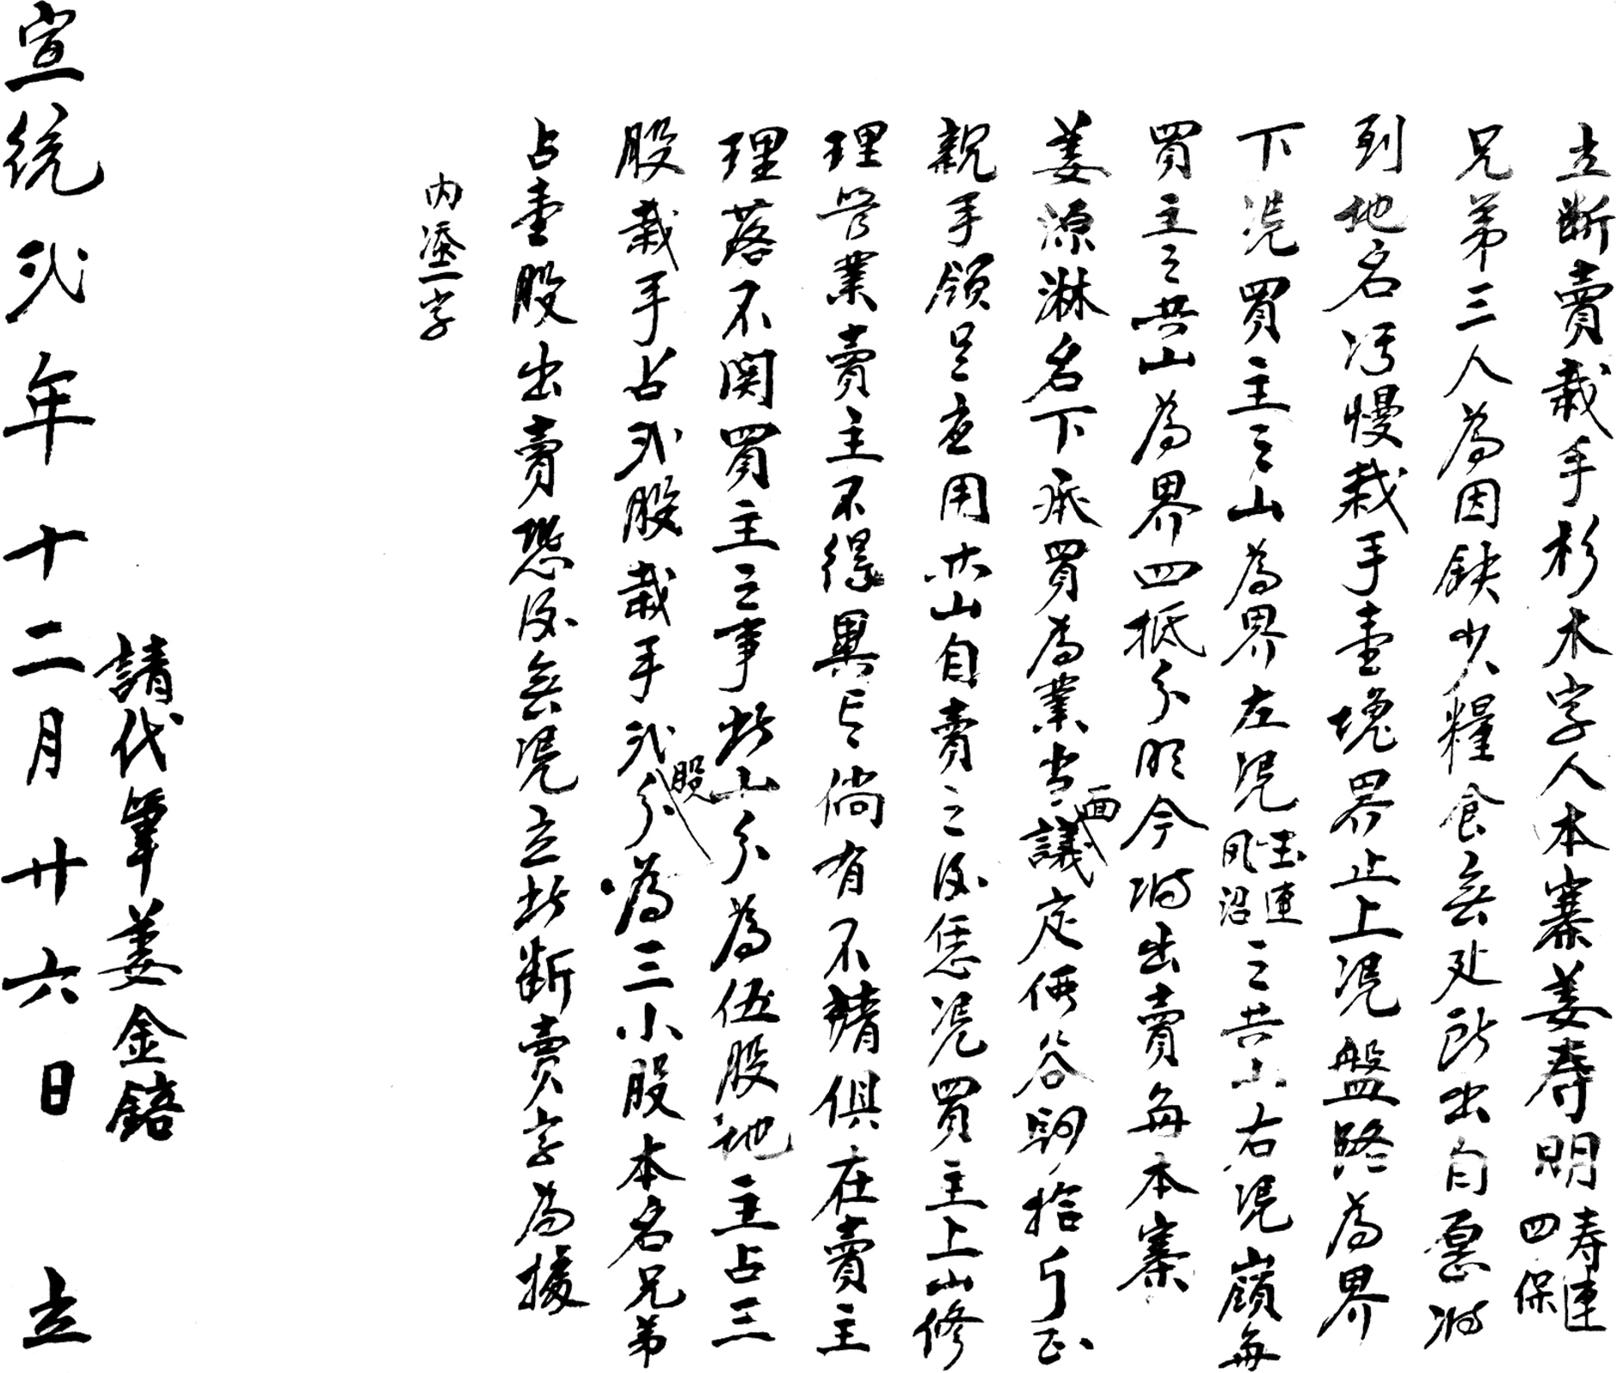 立断賣栽手杉木字人本寨姜寿明寿連四保
兄弟三人為因缺少糧食無処所出自愿将
到地名污慢栽手壹塊界止上凴盤路為界
下凴買主之山為界左凴圭連凤沼之共山右凴嶺與
買主之共山為界四抵分明今將出賣與本寨
姜源淋名下承買為業当面議定價谷四拾斤正
親手領足應用其山自賣之後任凴買主上山修
理管業賣主不得異言倘有不清俱在賣主
理落不関買主之事此山分為伍股地主占三
股栽手占弍股栽手弍股分為三小股本名兄弟
占壹股出賣恐後無凴立此断賣字為據
内添一字
請代筆姜金錇
宣統弍年十二月廿六日 立